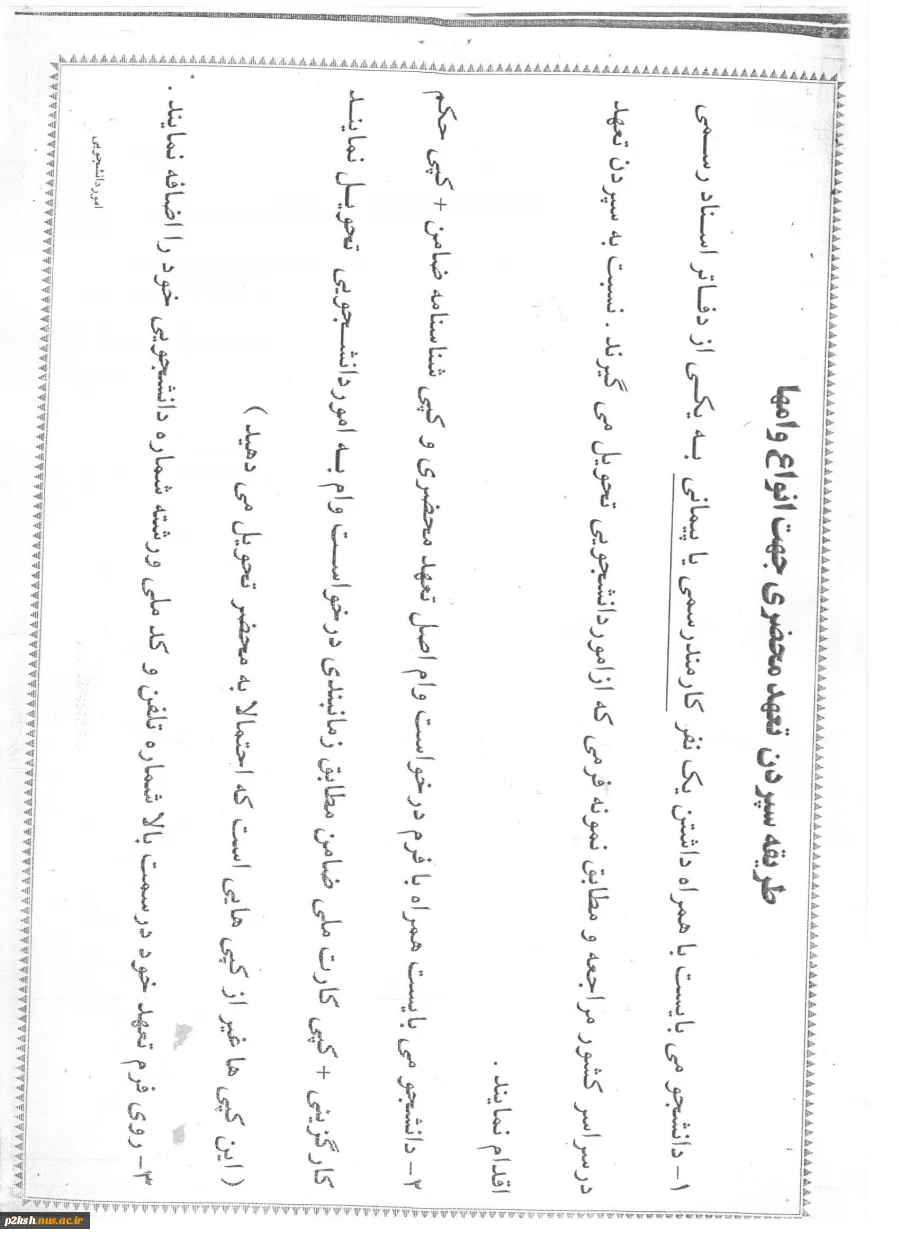 طریقه سپردن تعهد محضری جهت انواع وامها
۱- دانشجو می بایست با همراه داشتن یک نفر کارمندرسمی یا پیمانی به یکی از دفاتر اسناد رسمی
درسراسر کشور مراجعه و مطابق نمونه فرمی که ازاموردانشجویی تحویل می گیرند. نسبت به سپردن تعهد
اقدام نمایند.
۲- دانشجو می بایست همراه با فرم درخواست وام اصل تعهد محضری و کپی شناسنامه ضامن + کپی حکم
کارگزینی + کپی کارت ملی ضامن مطابق زمانبندی درخواست وام به اموردانشجویی تحویل نمایند
( این کپی ها غیر از کپی هایی است که احتمالا به محضر تحویل می دهید )
۳- روی فرم تعهد خود درسمت بالا شماره تلفن و کد ملی ورشته شماره دانشجویی خود را اضافه نمایند.
اموردانشجویی
p2ksh.nus.ac.ir